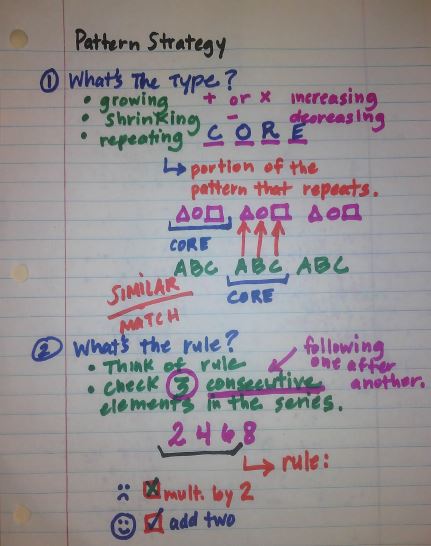 Pattern Strategy
① What's The Type?
• growing + or x increasing
• shrinking - decreasing
• repeating C O R E
↳ portion of the
pattern that repeats.
△○□ △○□ △○□
CORE
ABC ABC ABC
CORE
SIMILAR
MATCH
② What's the rule?
• Think of rule
• check 3 consecutive
elements in the series.
following
one after
another.
2 4 6 8
↳ rule:
☹ ☒ mult. by 2
☺ ☑ add two